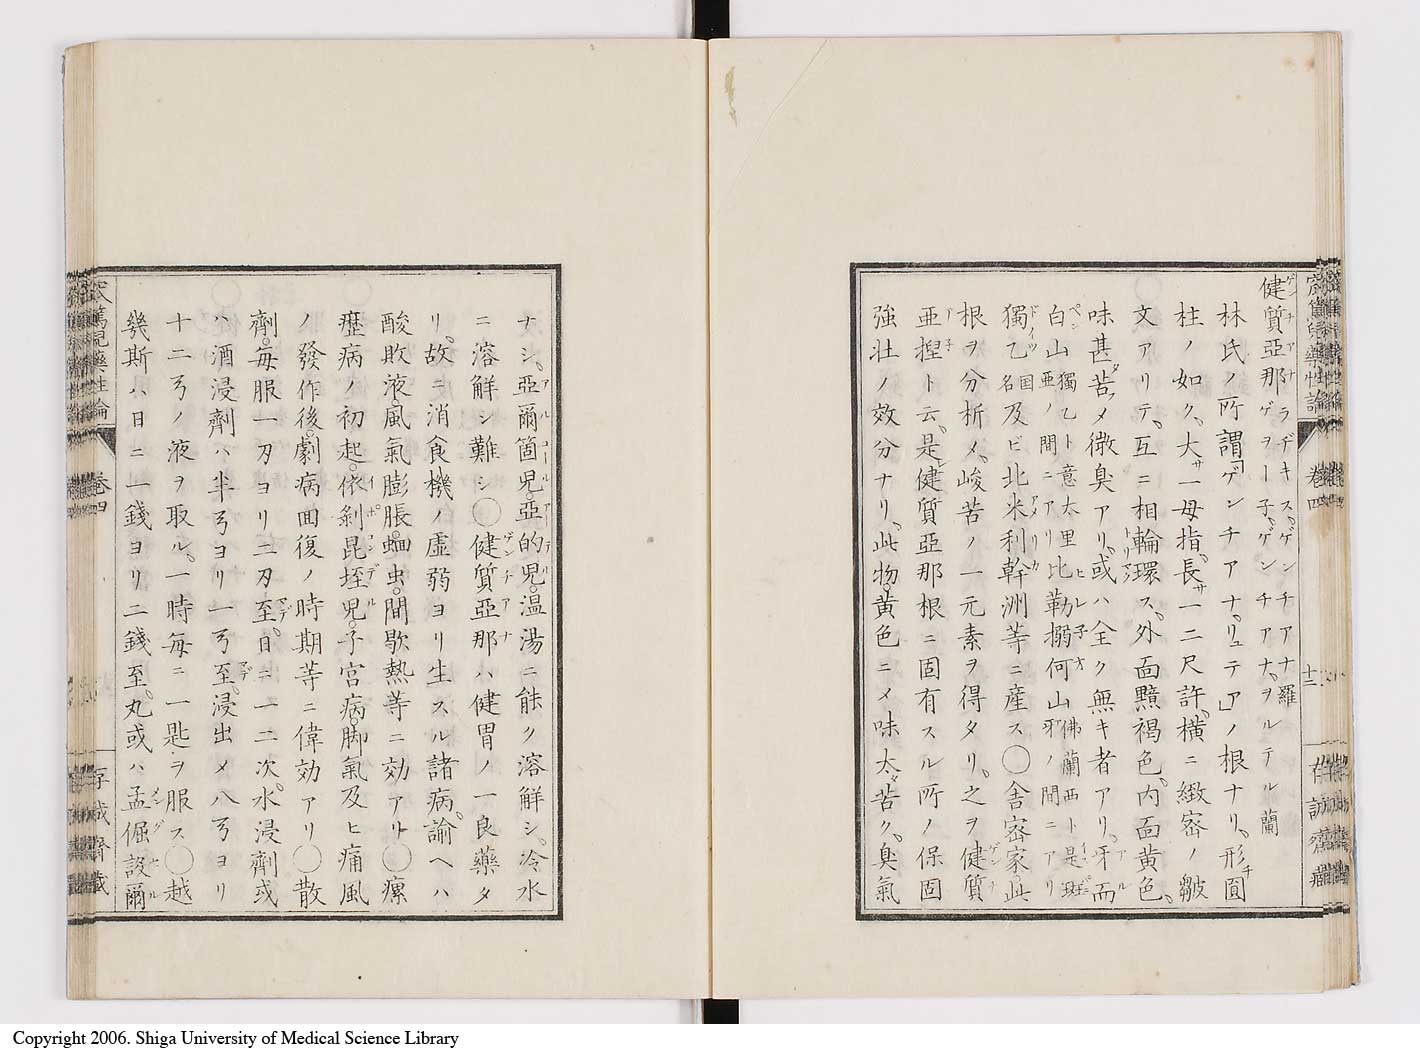 健質亞那 ラヂキス、ゲンチアナ 羅 ゲヲー子、ゲンチアナ、ヲルテル 蘭
林氏ノ所謂「ゲンチアナ、リュテア」ノ根ナリ、形圓
柱ノ如ク、大サ一母指、長サ一二尺許、橫ニ緻密ノ皺
文アリテ、互ニ相輪環ス、外面黯褐色、内面黃色、
味甚ダ苦ク〆微臭アリ、或ハ全ク無キ者アリ、牙而
白山 獨乙ト意太里亞ノ間ニアリ 比勒搦何山 佛蘭西ト是班牙ノ間ニアリ
獨乙 国名 及ビ北米利幹洲等ニ產ス◯舍密家此
根ヲ分析〆、峻苦ノ一元素ヲ得タリ、之ヲ健質
亜揑ト云、是レ健質亞那根ニ固有スル所ノ保固
強壯ノ效分ナリ、此物、黃色ニ〆味大ダ苦ク、臭氣
ナシ、亞爾箇兒、亞的兒、温湯ニ能ク溶解シ、冷水
ニ溶解シ難シ◯健質亞那ハ健胃ノ一良藥タ
リ、故ニ消食機ノ虛弱ヨリ生スル諸病、諭ヘハ
酸敗液、風氣膨脹、蛔虫、間歇熱等ニ効アリ◯瘰
癧病ノ初起、依剝昆垤兒、子宮病、脚氣及ヒ痛風
ノ發作後、劇病回復ノ時期等ニ偉効アリ◯散
劑、毎服一刄ヨリ二刄至、日ニ一二次、水浸劑或
ハ酒浸劑ハ半弓ヨリ一弓至、浸出〆八弓ヨリ
十二弓ノ液ヲ取ル、一時毎ニ一匙ヲ服ス◯越
幾斯ハ日ニ一錢ヨリ二錢至、丸或ハ孟倔設爾
卷四
十二
存誠齋藏
卷四
存誠齋藏
Copyright 2006. Shiga University of Medical Science Library